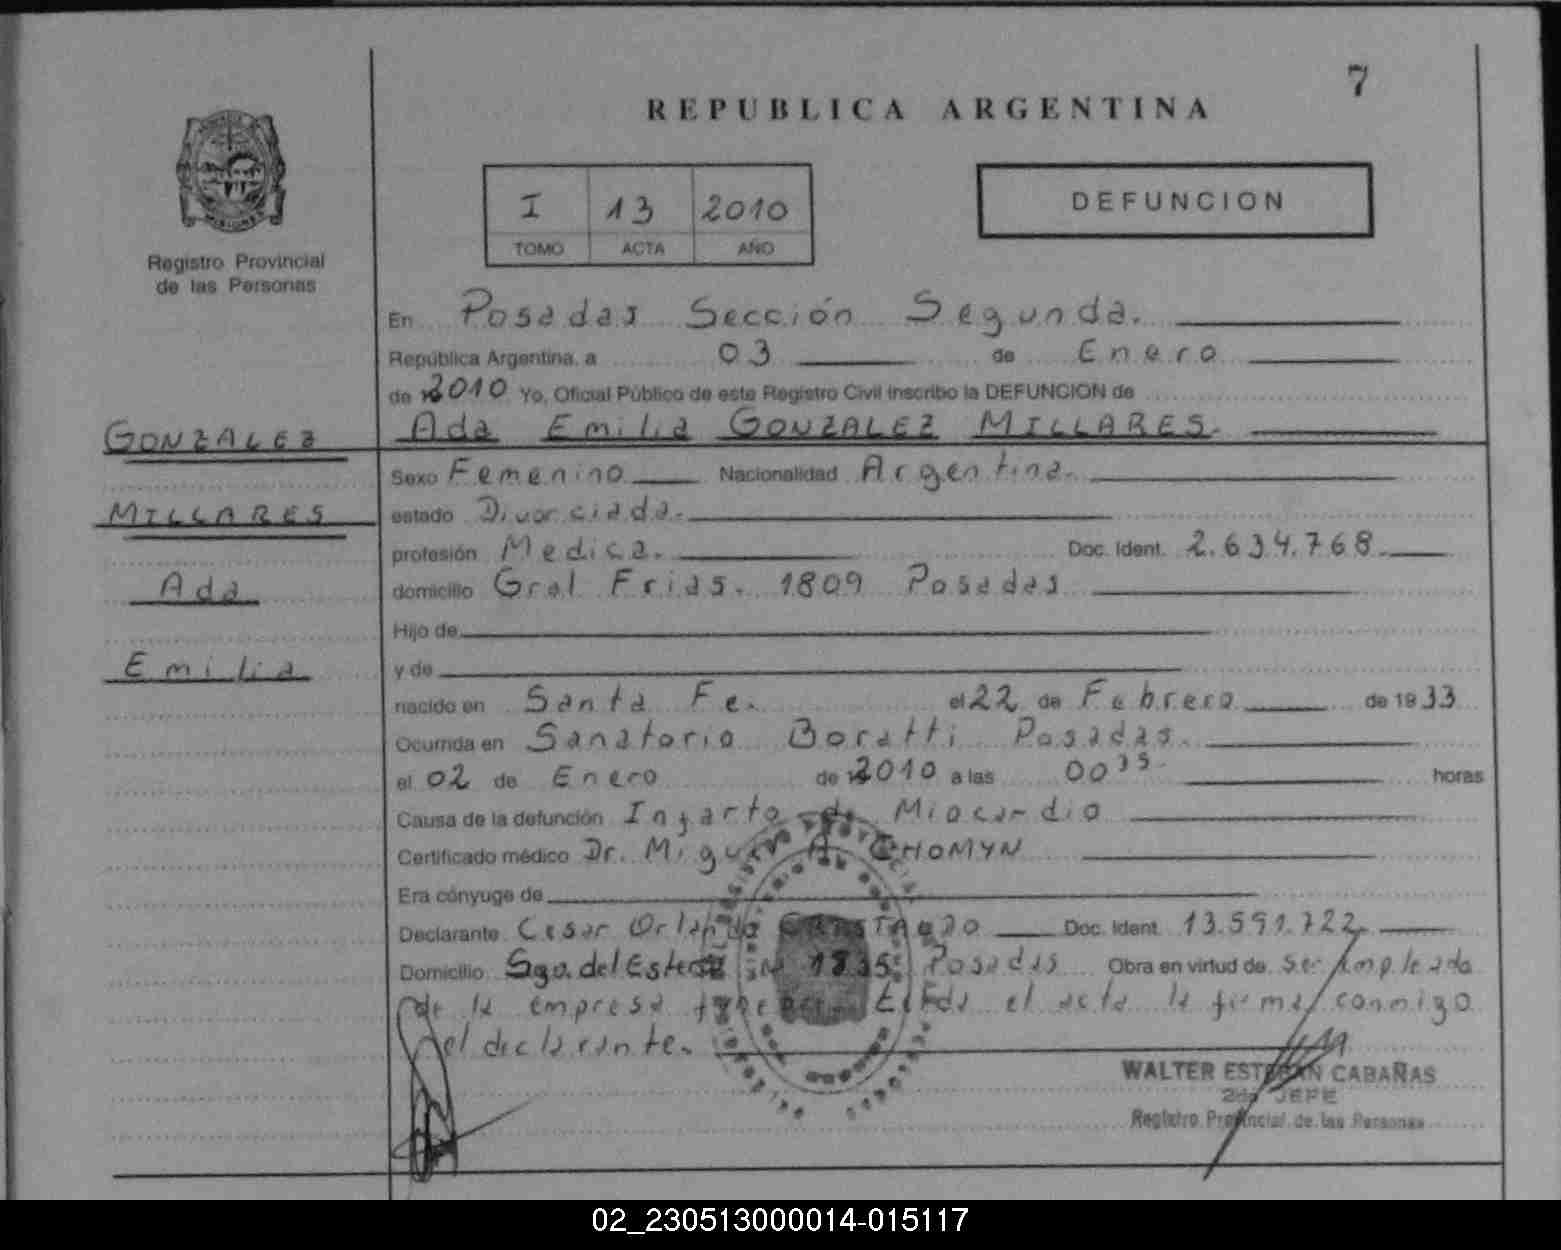 7
REPUBLICA ARGENTINA
I 13 2010
TOMO ACTA AÑO
DEFUNCION
Registro Provincial
de las Personas
En Posadas Sección Segunda.
República Argentina, a 03 de Enero
de 2010 Yo, Oficial Público de este Registro Civil inscribo la DEFUNCION de
Ada Emilia GONZALEZ MILLARES.
GONZALEZ
MILLARES
Ada
Emilia
Sexo Femenino Nacionalidad Argentina.
estado Divorciada.
profesión Medica. Doc. Ident. 2.634.768
domicilio Gral Frias. 1809 Posadas
Hijo de
y de
nacido en Santa Fe. el 22 de Febrero de 1933
Ocurrida en Sanatorio Boratti Posadas.
el 02 de Enero de 2010 a las 00 35 horas
Causa de la defunción Infarto de Miocardio
Certificado médico Dr. Miguel A CHOMYN
Era cónyuge de
Declarante Cesar Orlando Doc. Ident. 13.591.722
Domicilio Sgo. del Estero 1835 Posadas Obra en virtud de ser empleado
de la empresa Leída el acta la firma conmigo
el declarante.
WALTER ESTEBAN CABAÑAS
2do JEFE
Registro Provincial de las Personas
02_230513000014-015117